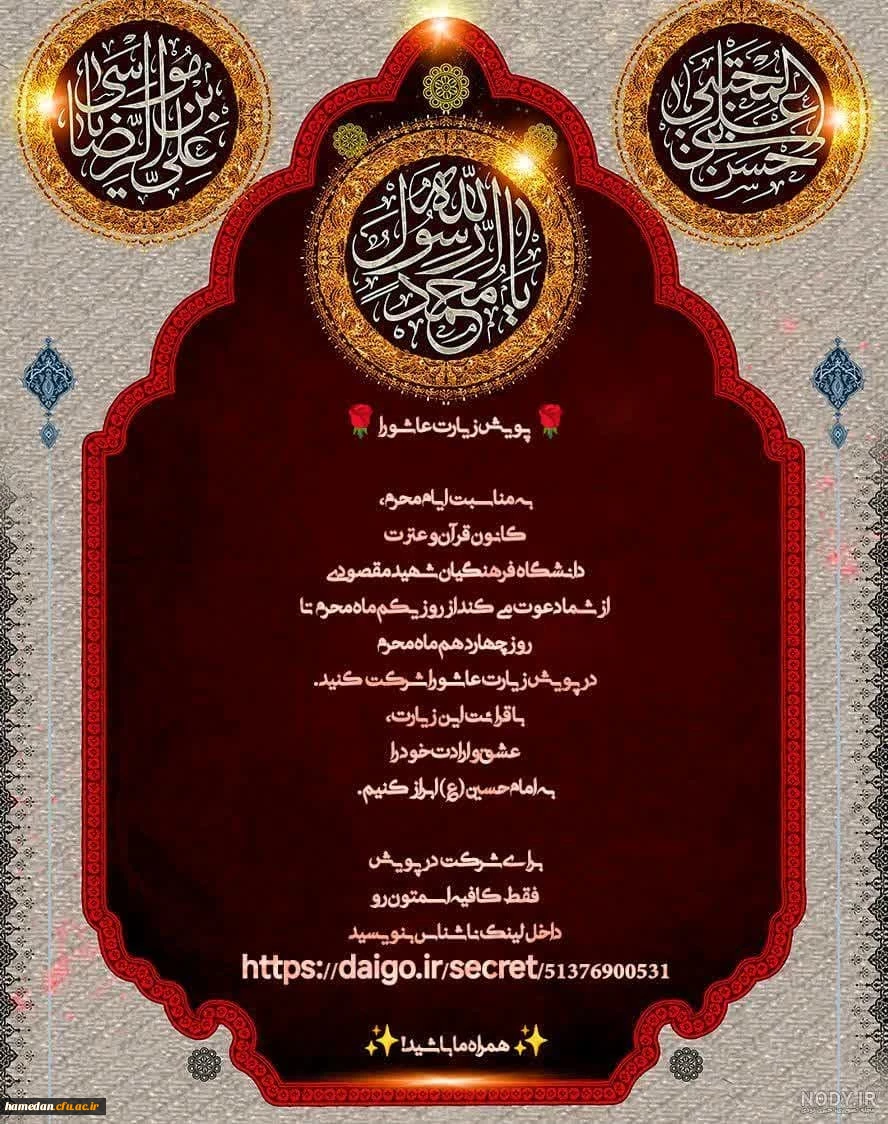 علی بن موسی الرضا
الحسن بن علی المجتبی
یا محمد رسول الله
🌹 پویش زیارت عاشورا 🌹
به مناسبت ایام محرم،
کانون قرآن و عترت
دانشگاه فرهنگیان شهید مقصودی
از شما دعوت می کند از روز یکم ماه محرم تا
روز چهاردهم ماه محرم
در پویش زیارت عاشورا شرکت کنید.
با قرائت این زیارت،
عشق و ارادت خود را
به امام حسین (ع) ابراز کنیم.
برای شرکت در پویش
فقط کافیه اسمتون رو
داخل لینک ناشناس بنویسید
https://daigo.ir/secret/51376900531
✨ همراه ما باشید! ✨
hamedan.cfu.ac.ir
NODY.IR